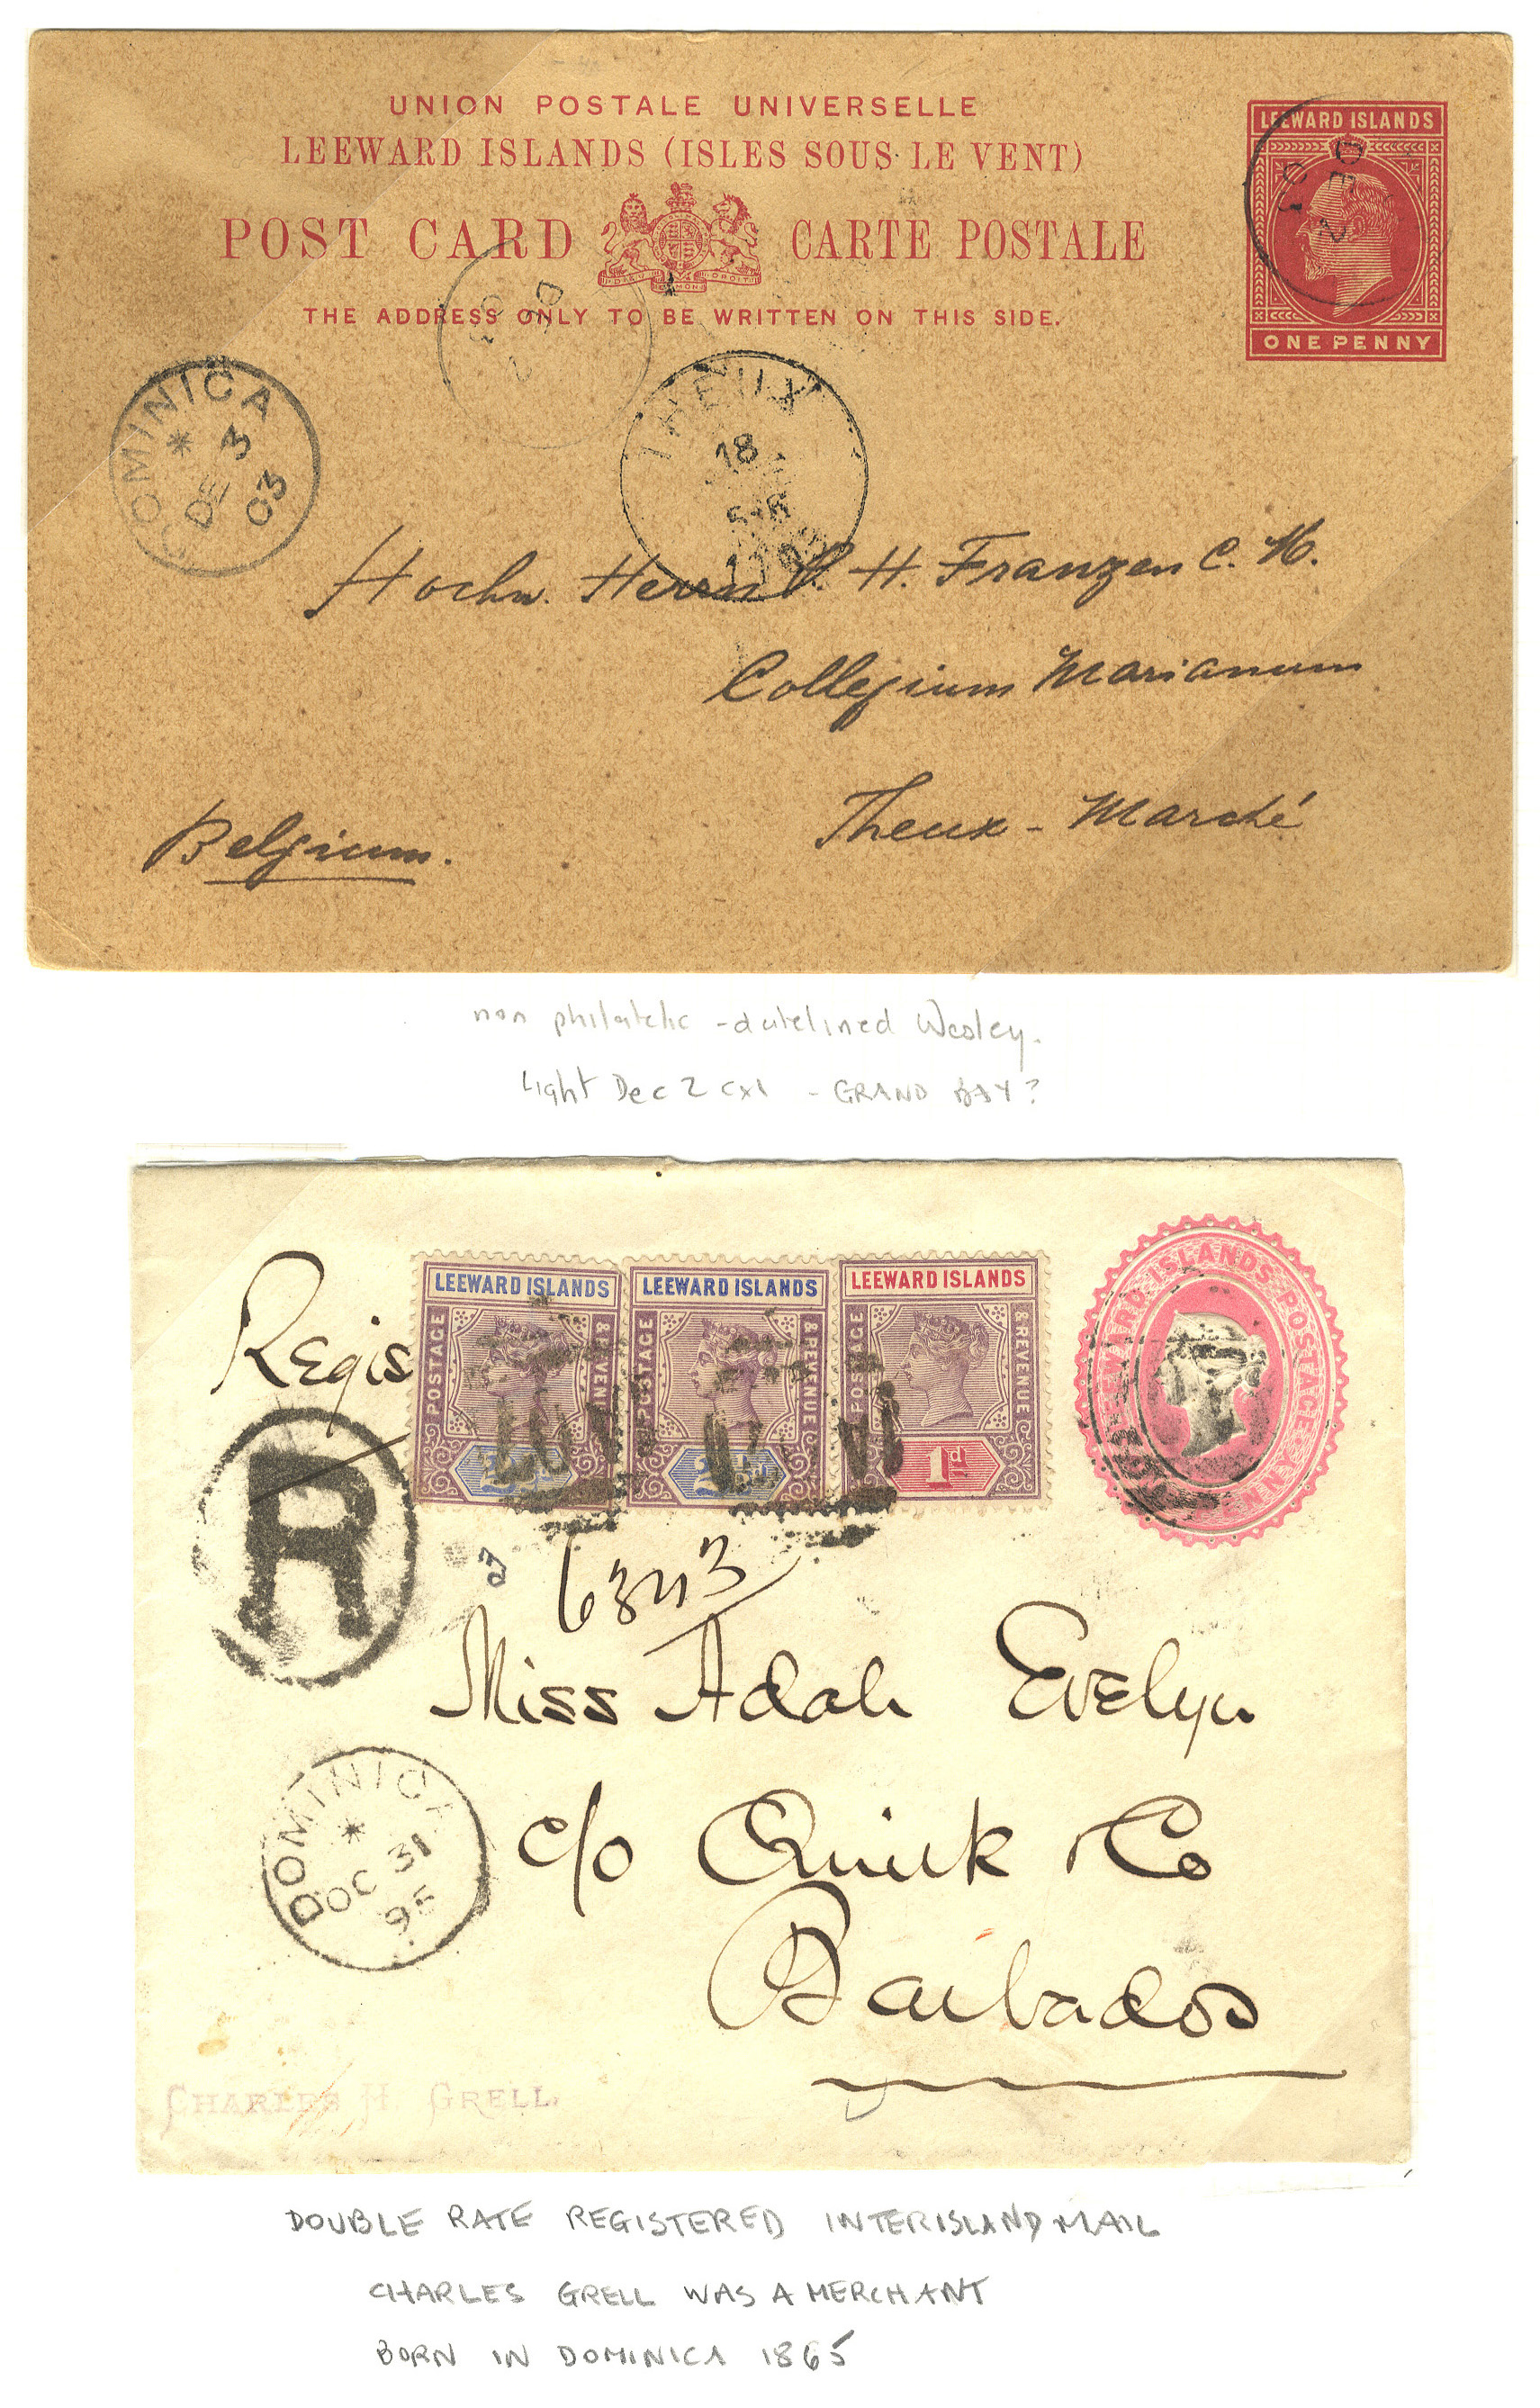 UNION POSTALE UNIVERSELLE
LEEWARD ISLANDS (ISLES SOUS LE VENT)
POST CARD CARTE POSTALE
THE ADDRESS ONLY TO BE WRITTEN ON THIS SIDE.
LEEWARD ISLANDS
ONE PENNY
DOMINICA
DE 3
03
THEUX
18
Hochw. Herrn P. H. Franzen C. M.
Collegium Marianum
Theux - Marché
Belgium.
non philatelic - datelined Wesley.
light Dec 2 cxl - GRAND BAY?
Regis
LEEWARD ISLANDS
POSTAGE & REVENUE
LEEWARD ISLANDS
POSTAGE & REVENUE
LEEWARD ISLANDS
POSTAGE & REVENUE
1d
LEEWARD ISLANDS POSTAGE
R
6343
Miss Adah Evelyn
c/o Quirk Co
Barbados
DOMINICA
OC 31
95
CHARLES H. GRELL.
DOUBLE RATE REGISTERED INTERISLAND MAIL
CHARLES GRELL WAS A MERCHANT
BORN IN DOMINICA 1865